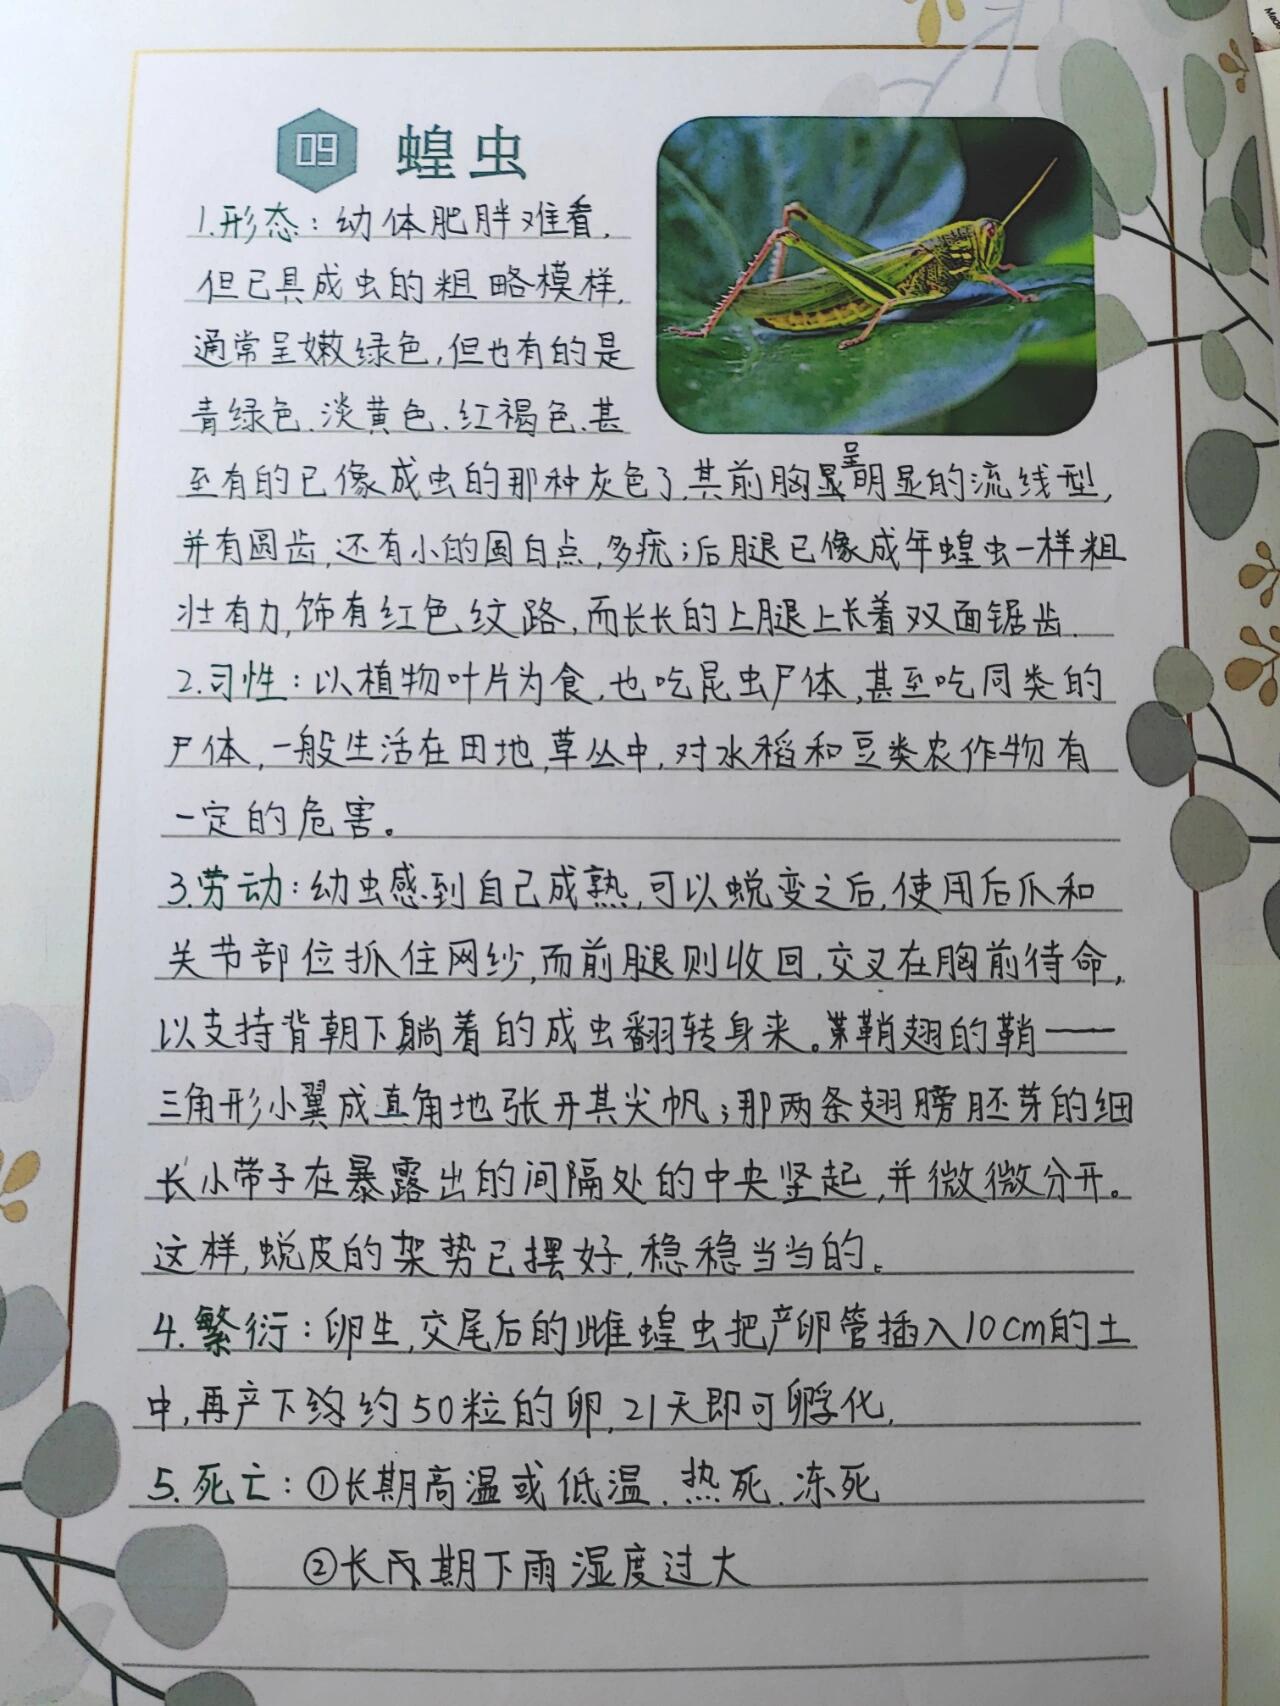 09 蝗虫
1.形态：幼体肥胖难看，
但已具成虫的粗略模样，
通常呈嫩绿色，但也有的是
青绿色、淡黄色、红褐色、甚
至有的已像成虫的那种灰色了，其前胸呈明显的流线型，
并有圆齿，还有小的圆白点，多疣；后腿已像成年蝗虫一样粗
壮有力，饰有红色纹路，而长长的上腿上长着双面锯齿．
2.习性：以植物叶片为食，也吃昆虫尸体，甚至吃同类的
尸体，一般生活在田地，草丛中，对水稻和豆类农作物有
一定的危害。
3.劳动：幼虫感到自己成熟，可以蜕变之后，使用后爪和
关节部位抓住网纱，而前腿则收回，交叉在胸前待命，
以支持背朝下躺着的成虫翻转身来。鞘翅的鞘——
三角形小翼成直角地张开其尖帆；那两条翅膀胚芽的细
长小带子在暴露出的间隔处的中央坚起，并微微分开。
这样，蜕皮的架势已摆好，稳稳当当的。
4.繁衍：卵生，交尾后的雌蝗虫把产卵管插入10cm的土
中，再产下约50粒的卵，21天即可孵化，
5.死亡：①长期高温或低温．热死．冻死
②长期下雨湿度过大